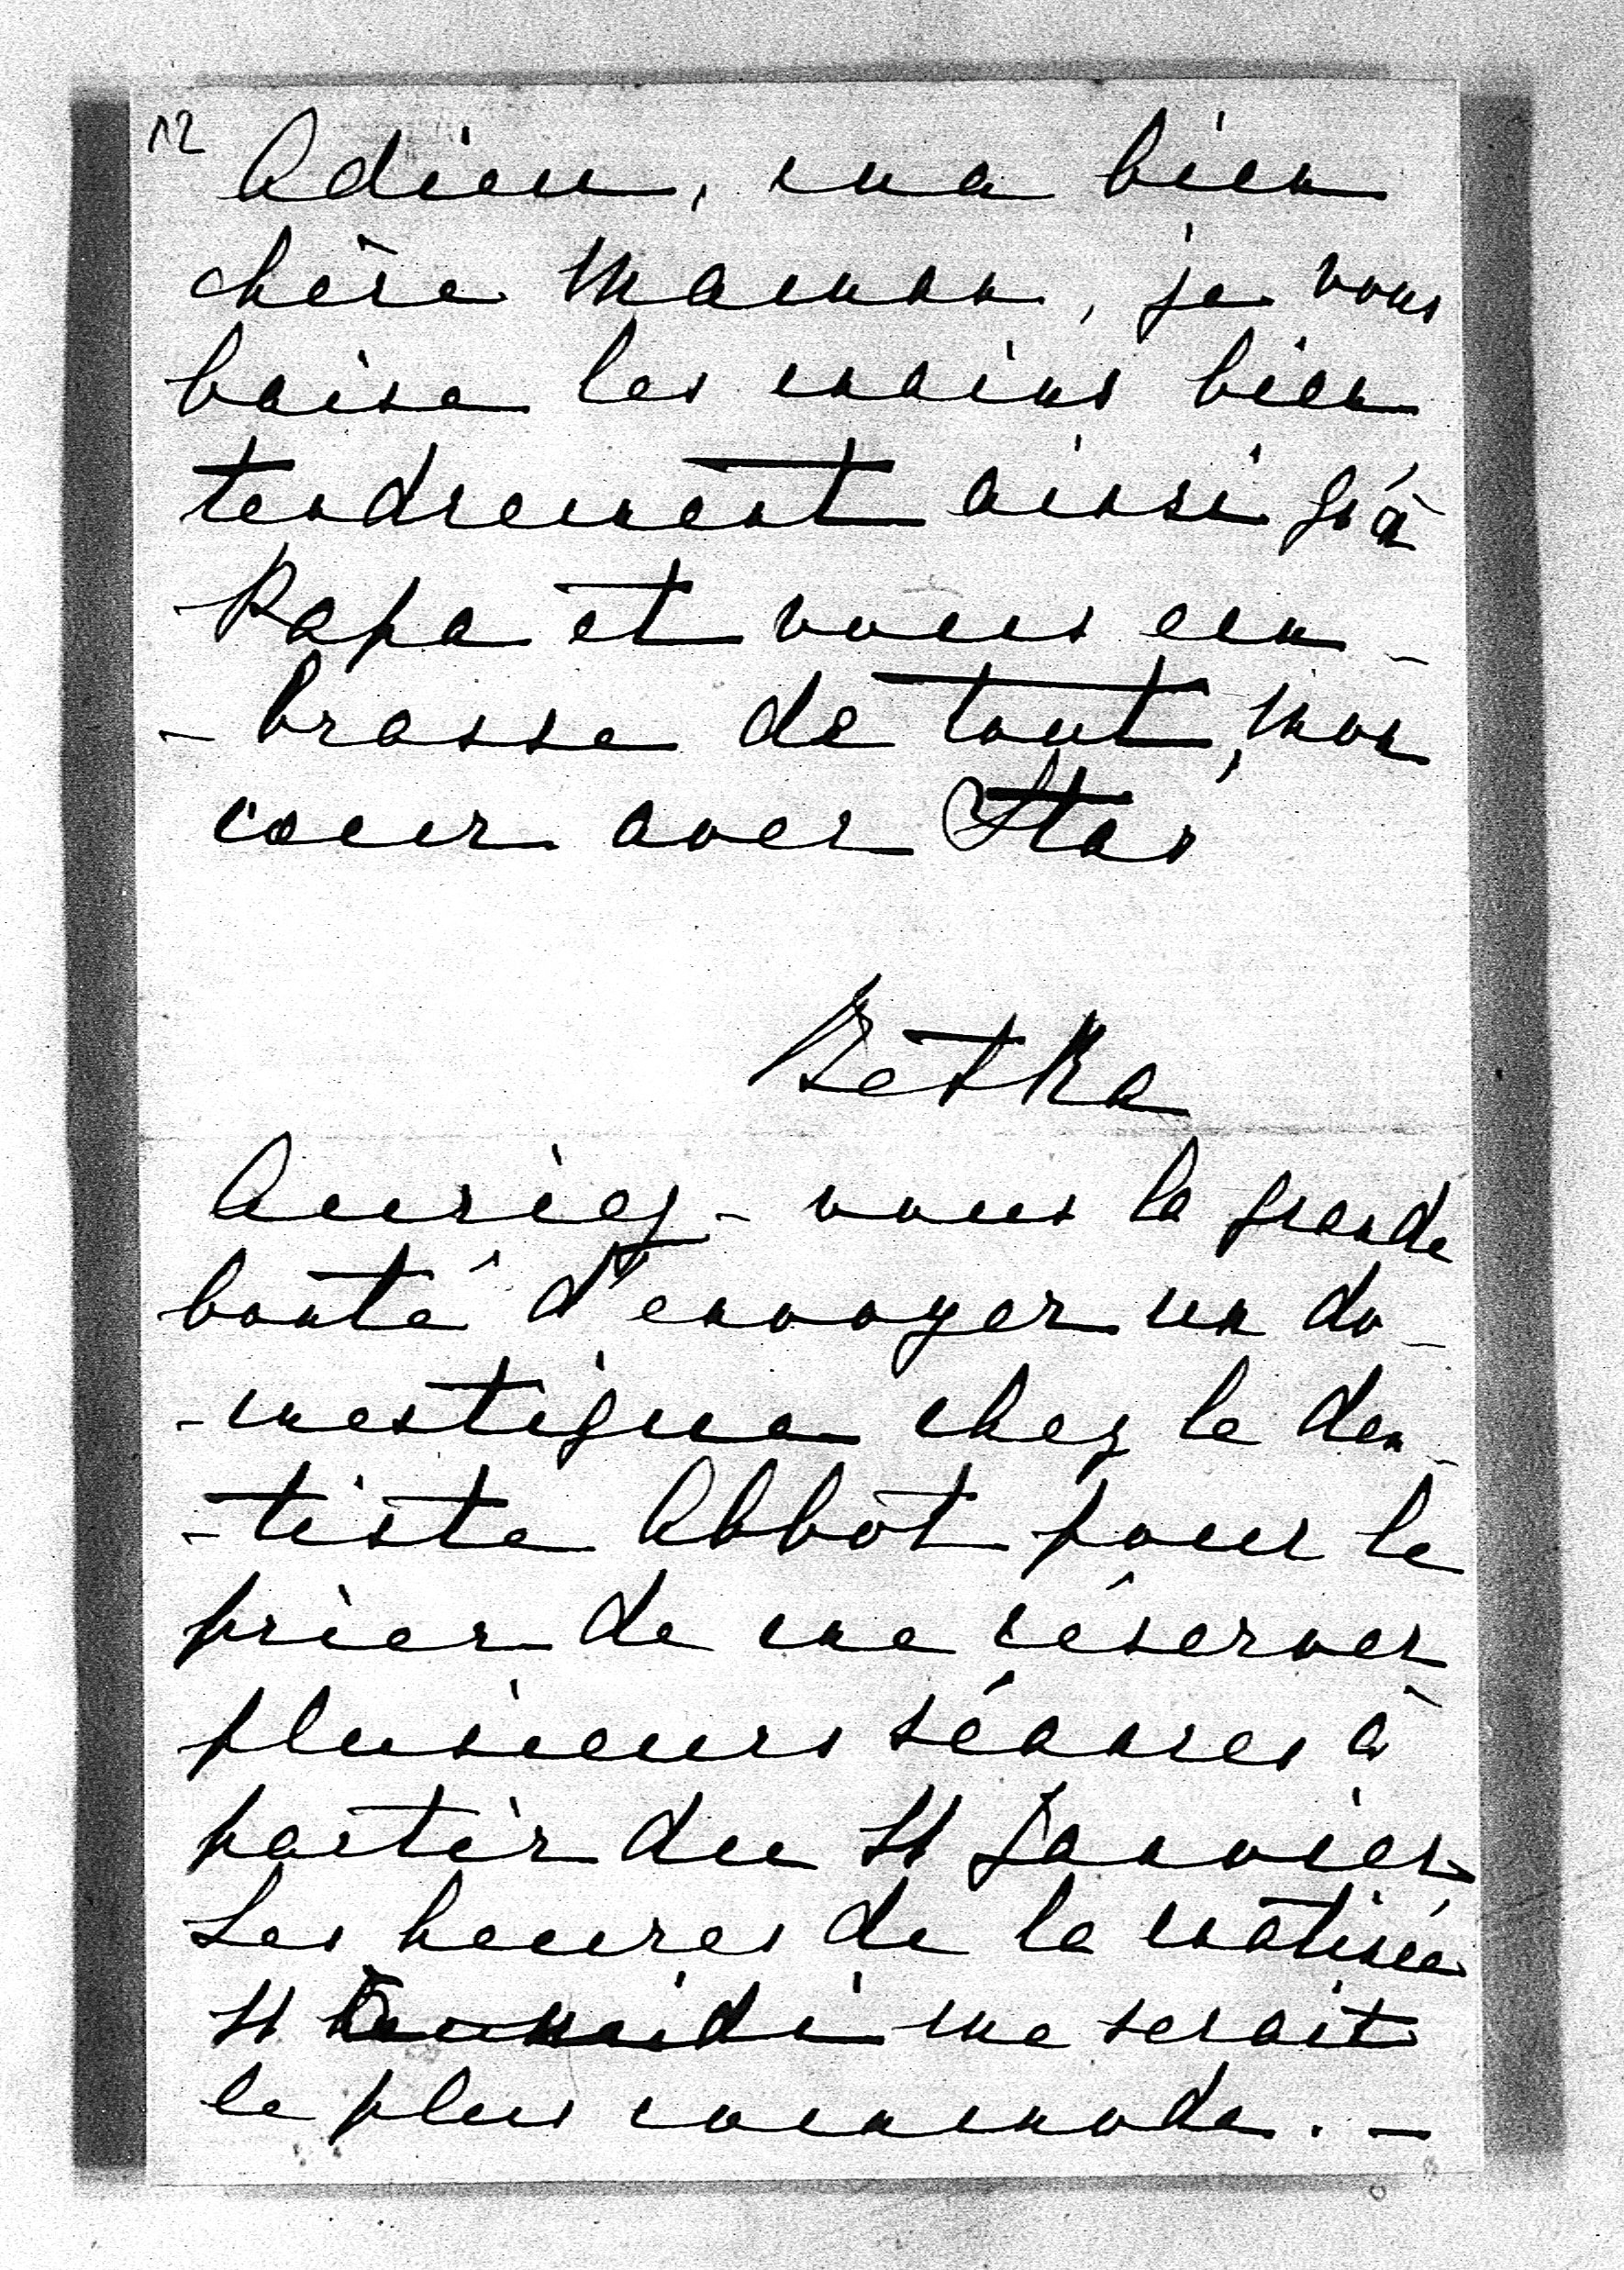 12
Adieu, ma bien
chère Maman, je vous
baise les mains bien
tendrement ainsi qu'à
Papa et vous em-
-brasse de tout mon
coeur avec Stas
Betka
Auriez-vous la grande
bonté d'envoyer un do-
-mestique chez le den-
-tiste Abbot pour le
prier de me réserver
plusieurs séances à
partir du 11 Janvier
Les heures de la matinée
me serait
le plus commode. -